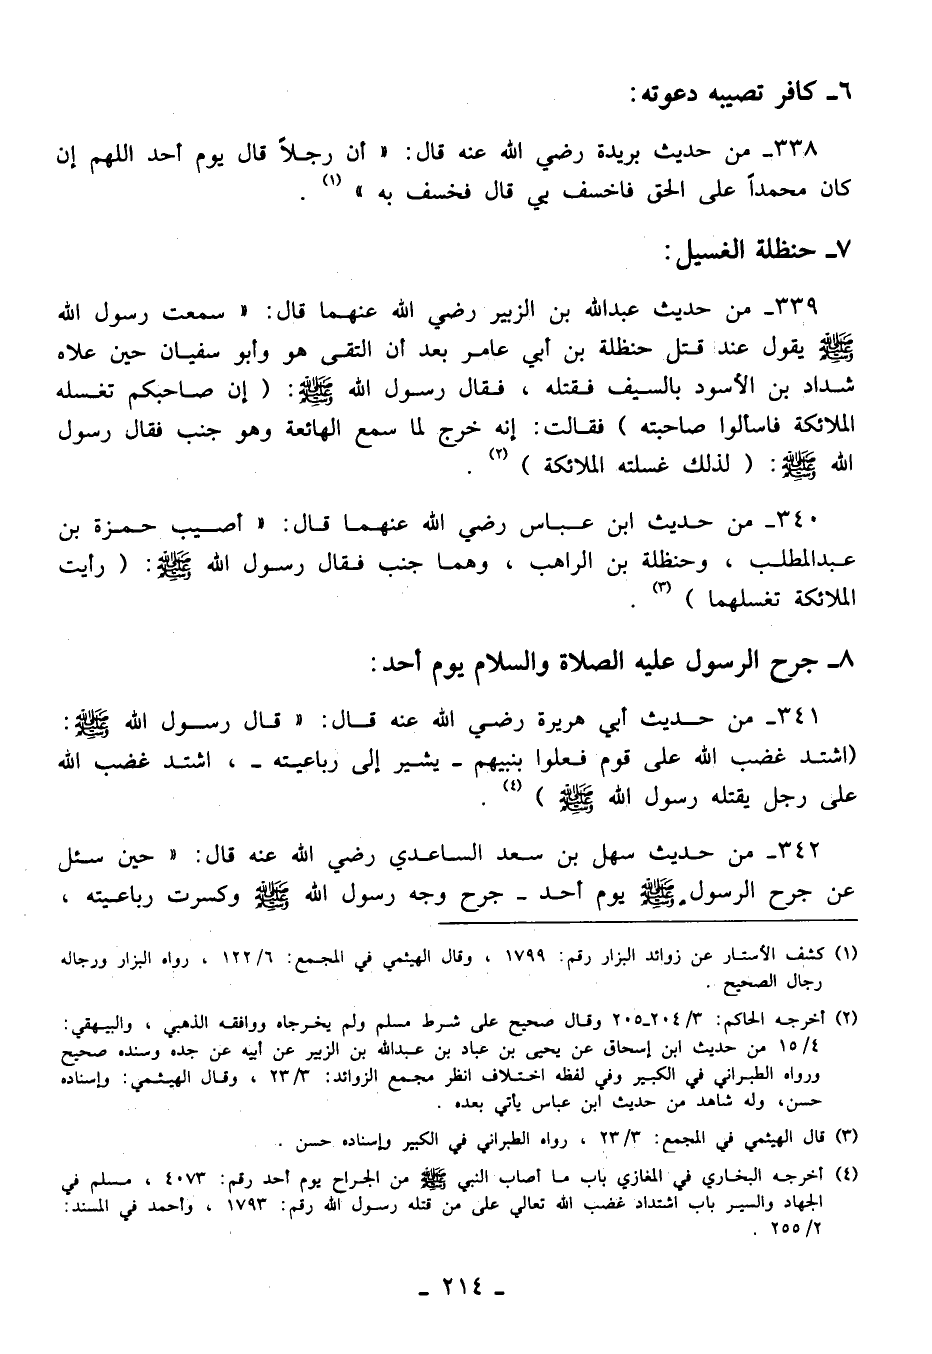 ٦ـ كافر تصيبه دعوته:
٣٣٨ـ من حديث بريدة رضي الله عنه قال: « أن رجلاً قال يوم أحد اللهم إن
كان محمداً على الحق فاخسف بي قال فخسف به » (١) .
٧ـ حنظلة الغسيل:
٣٣٩ـ من حديث عبدالله بن الزبير رضي الله عنهما قال: « سمعت رسول الله
ﷺ يقول عند قتل حنظلة بن أبي عامر بعد أن التقى هو وأبو سفيان حين علاه
شداد بن الأسود بالسيف فقتله ، فقال رسول الله ﷺ: ( إن صاحبكم تغسله
الملائكة فاسألوا صاحبته ) فقالت: إنه خرج لما سمع الهائعة وهو جنب فقال رسول
الله ﷺ: ( لذلك غسلته الملائكة ) (٢) .
٣٤٠ـ من حديث ابن عباس رضي الله عنهما قال: « أصيب حمزة بن
عبدالمطلب ، وحنظلة بن الراهب ، وهما جنب فقال رسول الله ﷺ: ( رأيت
الملائكة تغسلهما ) (٣) .
٨ـ جرح الرسول عليه الصلاة والسلام يوم أحد:
٣٤١ـ من حديث أبي هريرة رضي الله عنه قال: « قال رسول الله ﷺ:
(اشتد غضب الله على قوم فعلوا بنبيهم ـ يشير إلى رباعيته ـ ، اشتد غضب الله
على رجل يقتله رسول الله ﷺ ) (٤) .
٣٤٢ـ من حديث سهل بن سعد الساعدي رضي الله عنه قال: « حين سئل
عن جرح الرسول ﷺ يوم أحد ـ جرح وجه رسول الله ﷺ وكسرت رباعيته ،
(١) كشف الأستار عن زوائد البزار رقم: ١٧٩٩ ، وقال الهيثمي في المجمع: ١٢٢/٦ ، رواه البزار ورجاله
رجال الصحيح .
(٢) أخرجه الحاكم: ٢٠٤/٣ـ٢٠٥ وقال صحيح على شرط مسلم ولم يخرجاه ووافقه الذهبي ، والبيهقي:
١٥/٤ من حديث ابن إسحاق عن يحيى بن عباد بن عبدالله بن الزبير عن أبيه عن جده وسنده صحيح
ورواه الطبراني في الكبير وفي لفظه اختلاف انظر مجمع الزوائد: ٢٣/٣ ، وقال الهيثمي: وإسناده
حسن، وله شاهد من حديث ابن عباس يأتي بعده .
(٣) قال الهيثمي في المجمع: ٢٣/٣ ، رواه الطبراني في الكبير وإسناده حسن .
(٤) أخرجه البخاري في المغازي باب ما أصاب النبي ﷺ من الجراح يوم أحد رقم: ٤٠٧٣ ، مسلم في
الجهاد والسير باب اشتداد غضب الله تعالي على من قتله رسول الله رقم: ١٧٩٣ ، وأحمد في المسند:
٢٥٥/٢ .
ـ ٢١٤ ـ